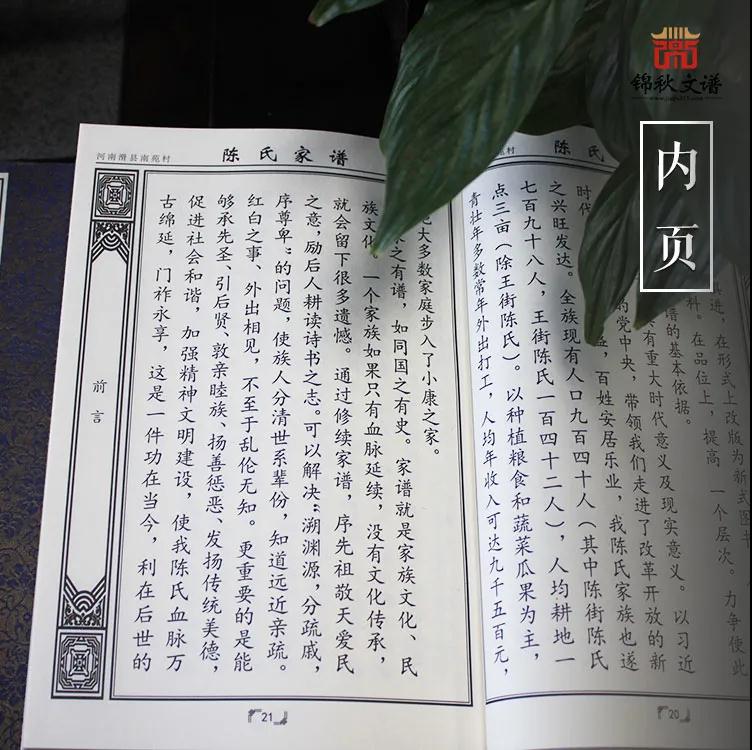 锦秋文谱
内页
陈氏
村
俱进，在形式上改版为新
料。在品位上，提高一个层次。力争使此
谱的基本依据。
具有重大时代意义及现实意义。以习近
的党中央，带领我们走进了改革开放的新
时代
益，百姓安居乐业，我陈氏家族也遂
之兴旺发达。全族现有人口九百四十人（其中陈街陈氏
七百九十八人，王街陈氏一百四十二人），人均耕地一
点三亩（除王街陈氏）。以种植粮食和蔬菜瓜果为主，
青壮年多数常年外出打工，人均年收入可达九千五百元，
20
河南滑县南苑村
陈氏家谱
大多数家庭步入了小康之家。
之有谱，如同国之有史。家谱就是家族文化、民
族文化 一个家族如果只有血脉延续，没有文化传承，
就会留下很多遗憾。通过修续家谱，序先祖敬天爱民
之意，励后人耕读诗书之志。可以解决“溯渊源，分疏戚，
序尊卑”的问题，使族人分清世系辈份，知道远近亲疏。
红白之事、外出相见，不至于乱伦无知。更重要的是能
够承先圣、引后贤、敦亲睦族、扬善惩恶、发扬传统美德，
促进社会和谐，加强精神文明建设，使我陈氏血脉万
古绵延，门祚永享，这是一件功在当今，利在后世的
前言
21